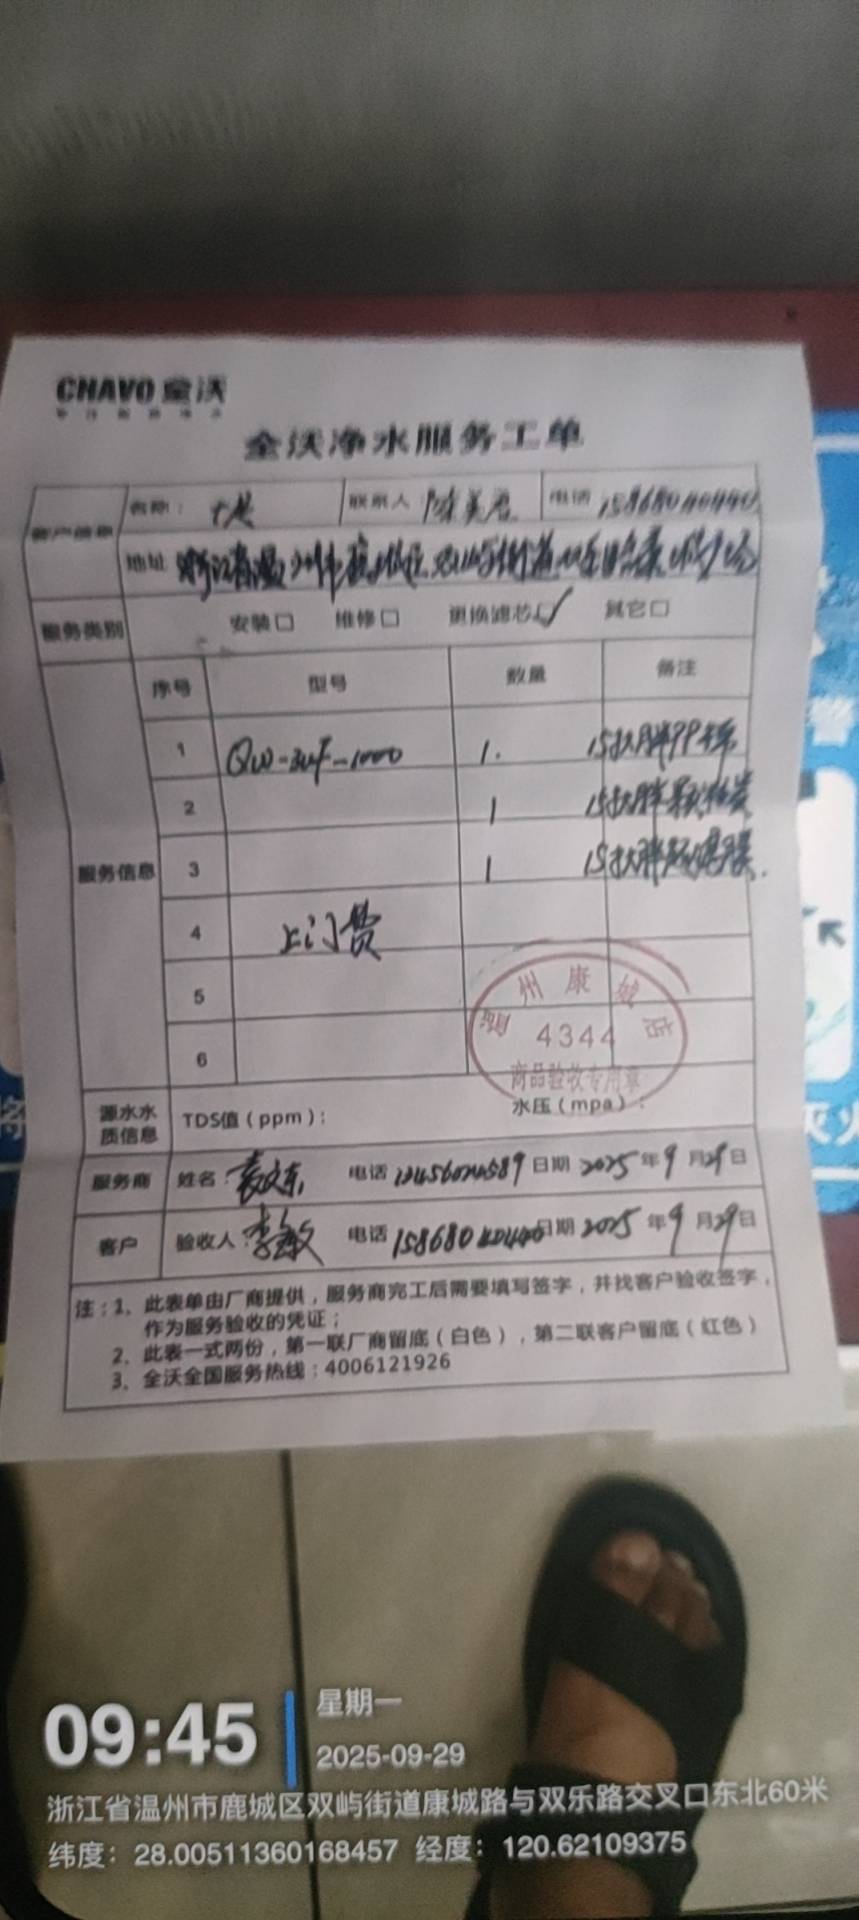 CHAVO 全沃
全沃净水服务工单
客户信息
名称： 联系人 陈美君 电话 15868040440
地址 浙江省温州市鹿城区双屿街道
服务类别 安装□ 维修□ 更换滤芯☑ 其它□
服务信息
序号 型号 数量 备注
1 QW-3UF-1000 1. 15寸大胖PP棉
2 1 15寸大胖颗粒炭
3 1 15寸大胖超滤膜.
4 上门费
5
6
温州康城店
4344
商品验收专用章
源水水质信息 TDS值（ppm）： 水压（mpa）：
服务商 姓名： 袁文东 电话 日期 2025年9月29日
客户 验收人： 李敏 电话 15868040440 日期 2025年9月29日
注：1、此表单由厂商提供，服务商完工后需要填写签字，并找客户验收签字，
作为服务验收的凭证；
2、此表一式两份，第一联厂商留底（白色），第二联客户留底（红色）
3、全沃全国服务热线：4006121926
警
将
灭火
09:45
星期一
2025-09-29
浙江省温州市鹿城区双屿街道康城路与双乐路交叉口东北60米
纬度：28.00511360168457 经度：120.62109375